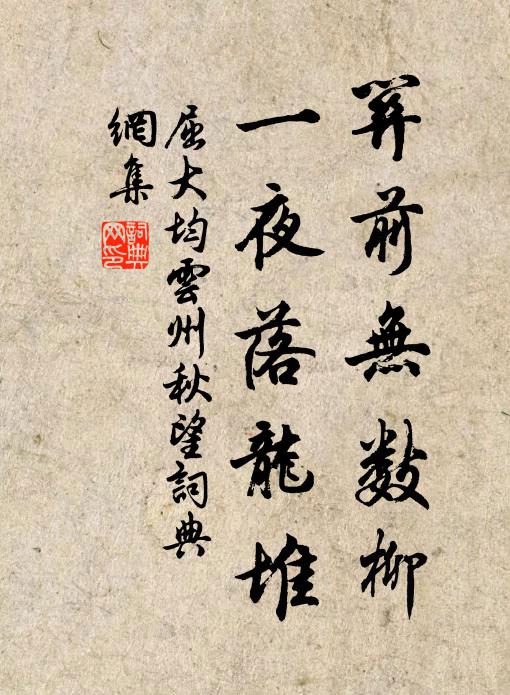 關前無数柳
一夜落龍堆
屈大均雲州秋望詞典
網集
詞典
网印